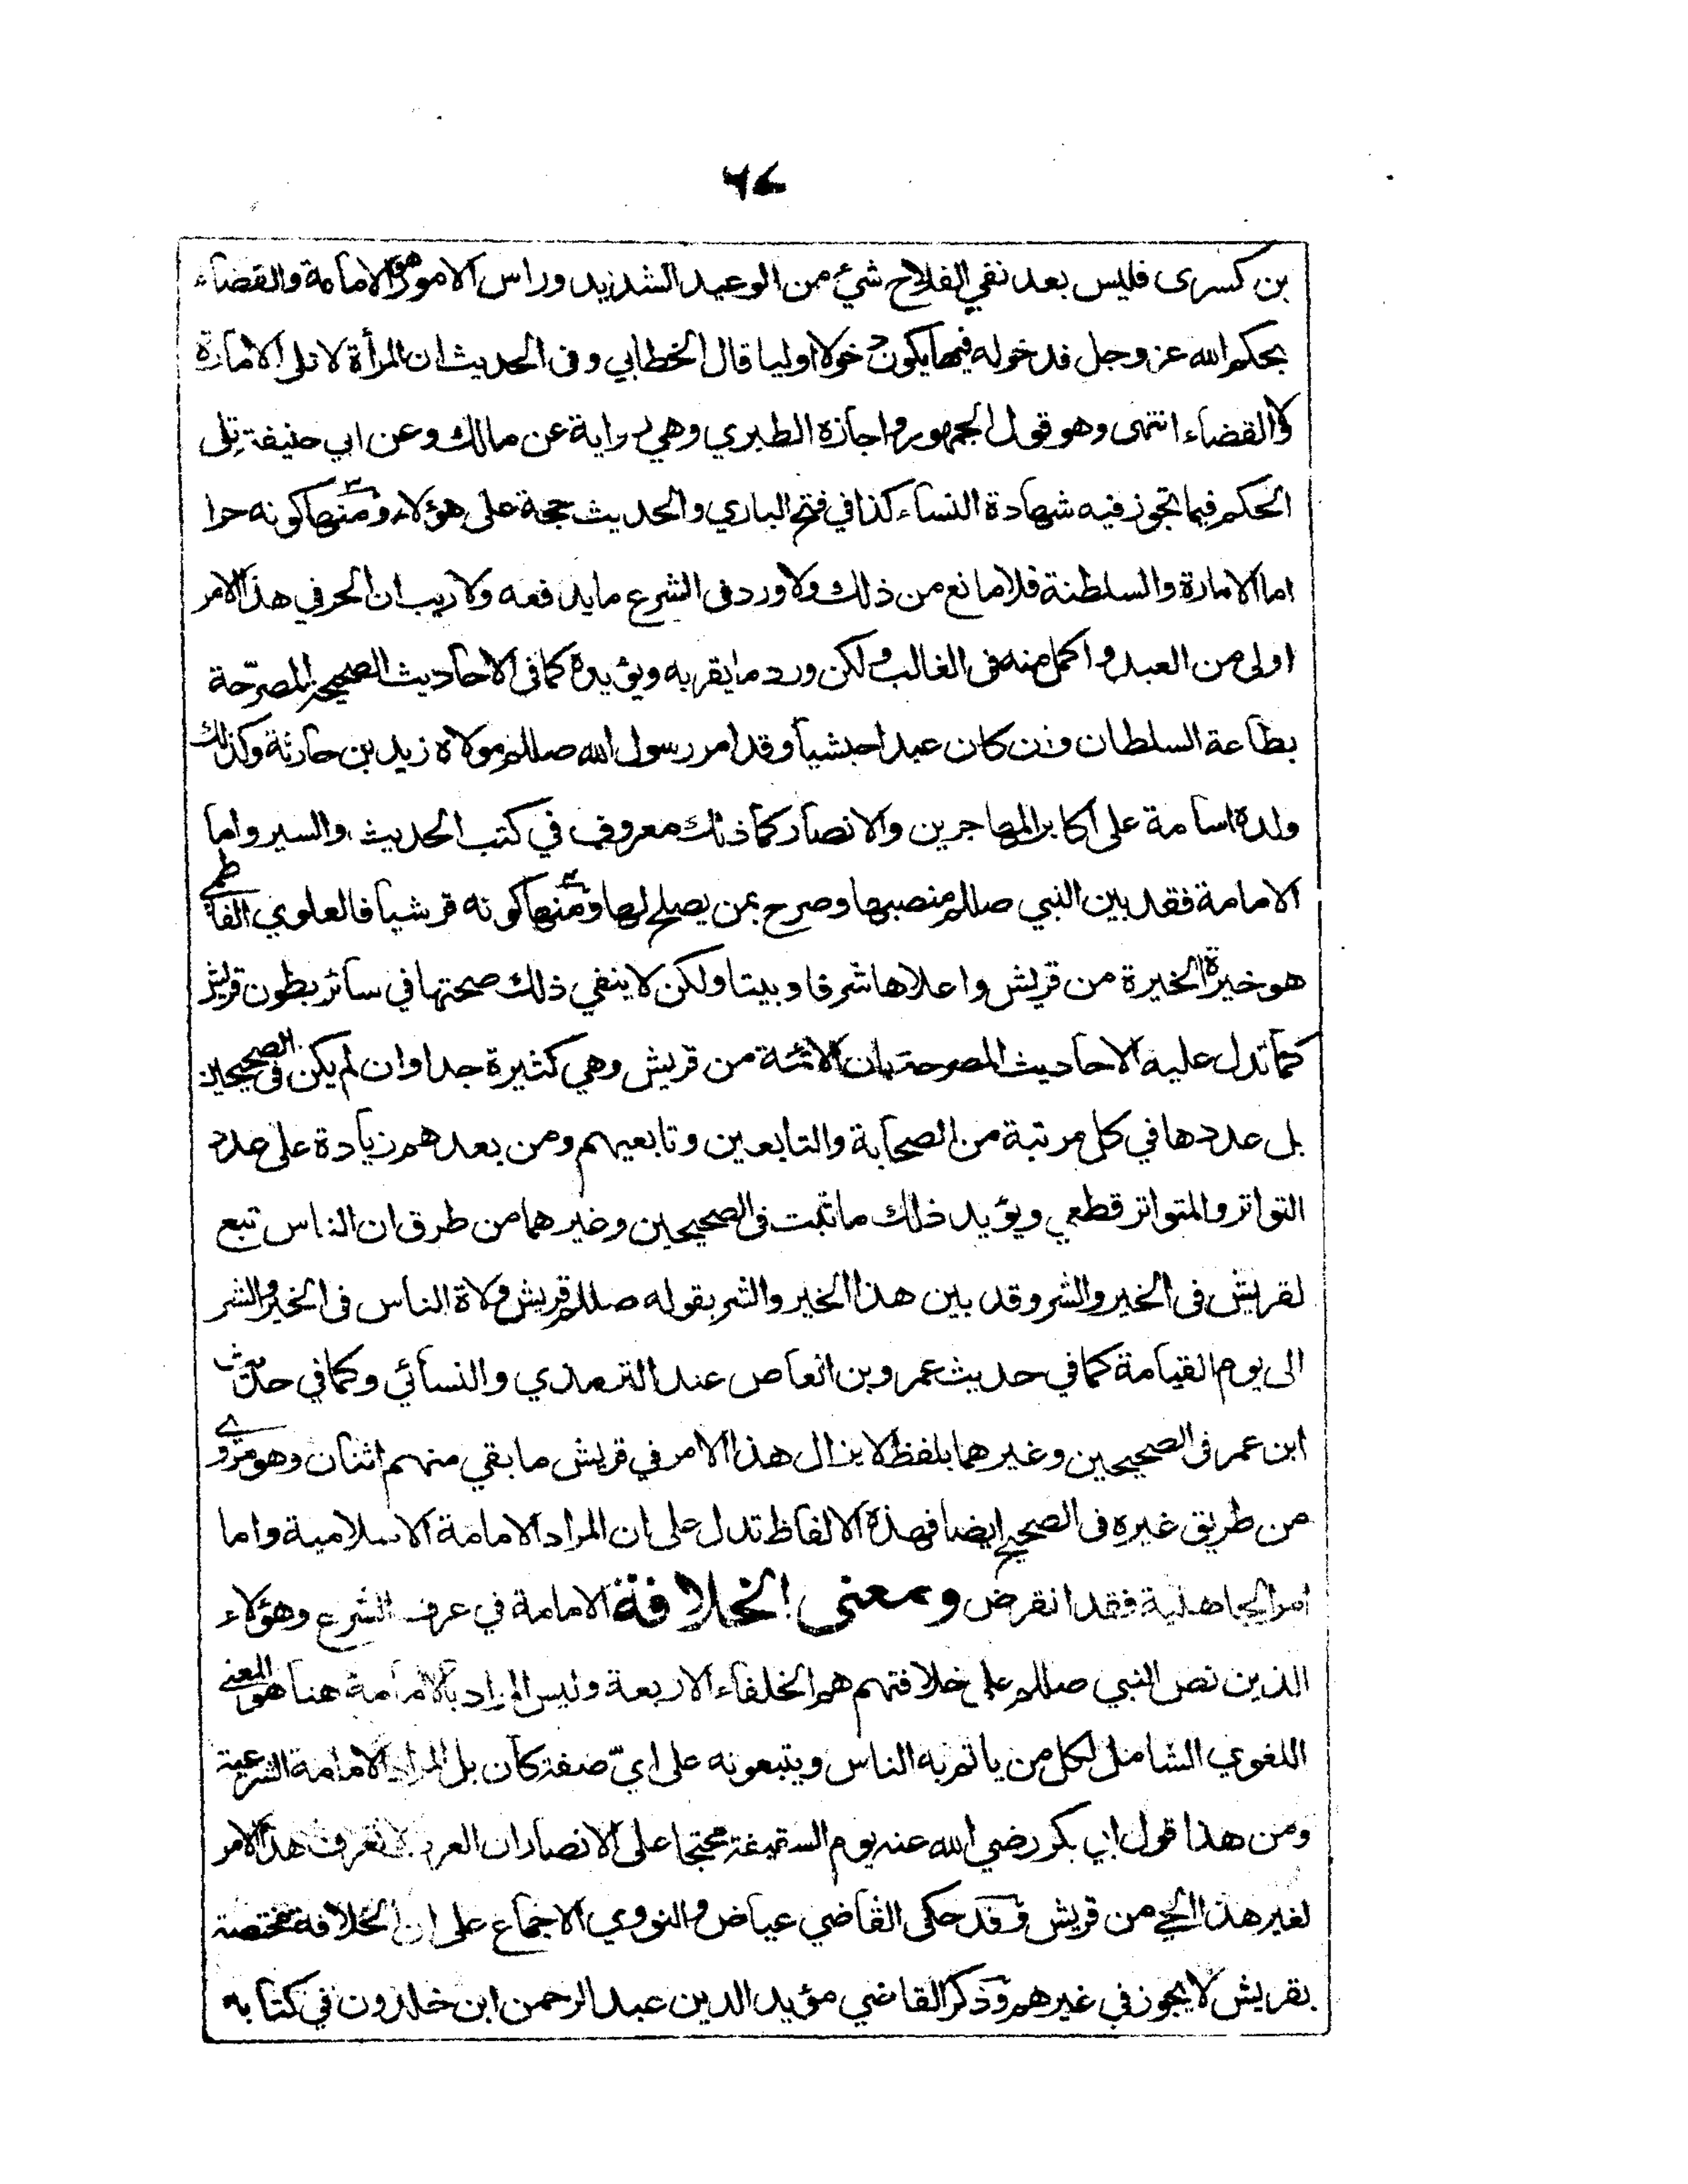 ٧٤
بن كسرى فليس بعد نفي الفلاح شيء من الوعيد الشديد وراس الامور هو الامامة والقضاء
بحكم الله عز وجل فدخوله فيها يكون دخولا اوليا قال الخطابي وفى الحديث ان المرأة لا تلى الامارة
ولا القضاء انتهى وهو قول الجمهور واجازه الطبري وهي رواية عن مالك وعن ابي حنيفة تلى
الحكم فيما تجوز فيه شهادة النساء كذا في فتح الباري والحديث حجة على هؤلاء ومنها كونه حرا
اما الامارة والسلطنة فلا مانع من ذلك ولا ورد فى الشرع ما يدفعه ولا ريب ان الحر في هذا الامر
اولى من العبد واكمل منه فى الغالب ولكن ورد ما يقربه ويؤيده كما فى الاحاديث الصحيحة المصرّحة
بطاعة السلطان وان كان عبدا حبشيا وقد امر رسول الله صللم مولاه زيد بن حارثة وكذلك
ولده اسامة على اكابر المهاجرين والانصار كما ذلك معروف في كتب الحديث والسير واما
الامامة فقد بين النبي صللم منصبها وصرح بمن يصلح لها ومنها كونه قرشيا فالعلوي الفاطمي
هو خيرة الخيرة من قريش واعلاها شرفا وبيتا ولكن لا ينفي ذلك صحتها في سائر بطون قريش
كما تدل عليه الاحاديث المصرحة بان الائمة من قريش وهي كثيرة جدا وان لم يكن فى الصحيحين
بل عددها في كل مرتبة من الصحابة والتابعين وتابعيهم ومن بعدهم زيادة على عدد
التواتر والمتواتر قطعي ويؤيد ذلك ما ثبت فى الصحيحين وغيرهما من طرق ان الناس تبع
لقريش فى الخير والشر وقد بين هذا الخير والشر بقوله صللم قريش ولاة الناس فى الخير والشر
الى يوم القيامة كما في حديث عمرو بن العاص عند الترمذي والنسائي وكما في حديث
ابن عمر فى الصحيحين وغيرهما بلفظ لا يزال هذا الامر في قريش ما بقي منهم اثنان وهو مروي
من طريق غيره فى الصحيح ايضا فهذه الالفاظ تدل على ان المراد الامامة الاسلامية واما
امر الجاهلية فقد انقرض ومعنى الخلافة الامامة في عرف الشرع وهؤلاء
الذين نص النبي صللم على خلافتهم هم الخلفاء الاربعة وليس المراد بالامامة هنا هو المعنى
اللغوي الشامل لكل من ياتم به الناس ويتبعونه على ايّ صفة كان بل المراد الامامة الشرعية
ومن هذا قول ابي بكر رضي الله عنه يوم السقيفة محتجا على الانصار ان العرب لا تعرف هذا الامر
لغير هذا الحي من قريش وقد حكى القاضي عياض والنووي الاجماع على ان الخلافة مختصة
بقريش لا يجوز في غيرهم وذكر القاضي مؤيد الدين عبد الرحمن ابن خلدون في كتابه